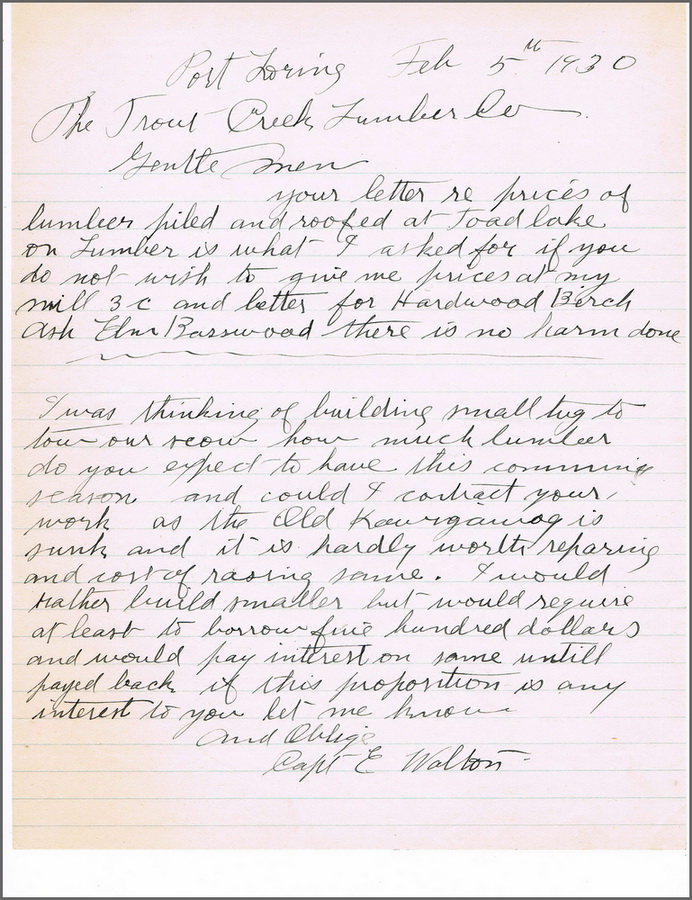 Port Loring Feb 5th 1930
The Trout Creek Lumber Co
Gentle men
your letter re prices of
lumber piled and roofed at Toad lake
on Lumber is what I asked for if you
do not wish to give me prices at my
mill 3 c and better for Hardwood Birch
Ash Elm Basswood there is no harm done
I was thinking of building small tug to
tow our scow how much lumber
do you expect to have this comming
season and could I contract your
work as the Old Kawigamog is
sunk and it is hardly worth reparing
and cost of rasing same. I would
rather build smaller but would require
at least to borrow five hundred dollars
and would pay interest on same untill
payed back if this proposition is any
interest to you let me know
and Oblige
Capt E Walton